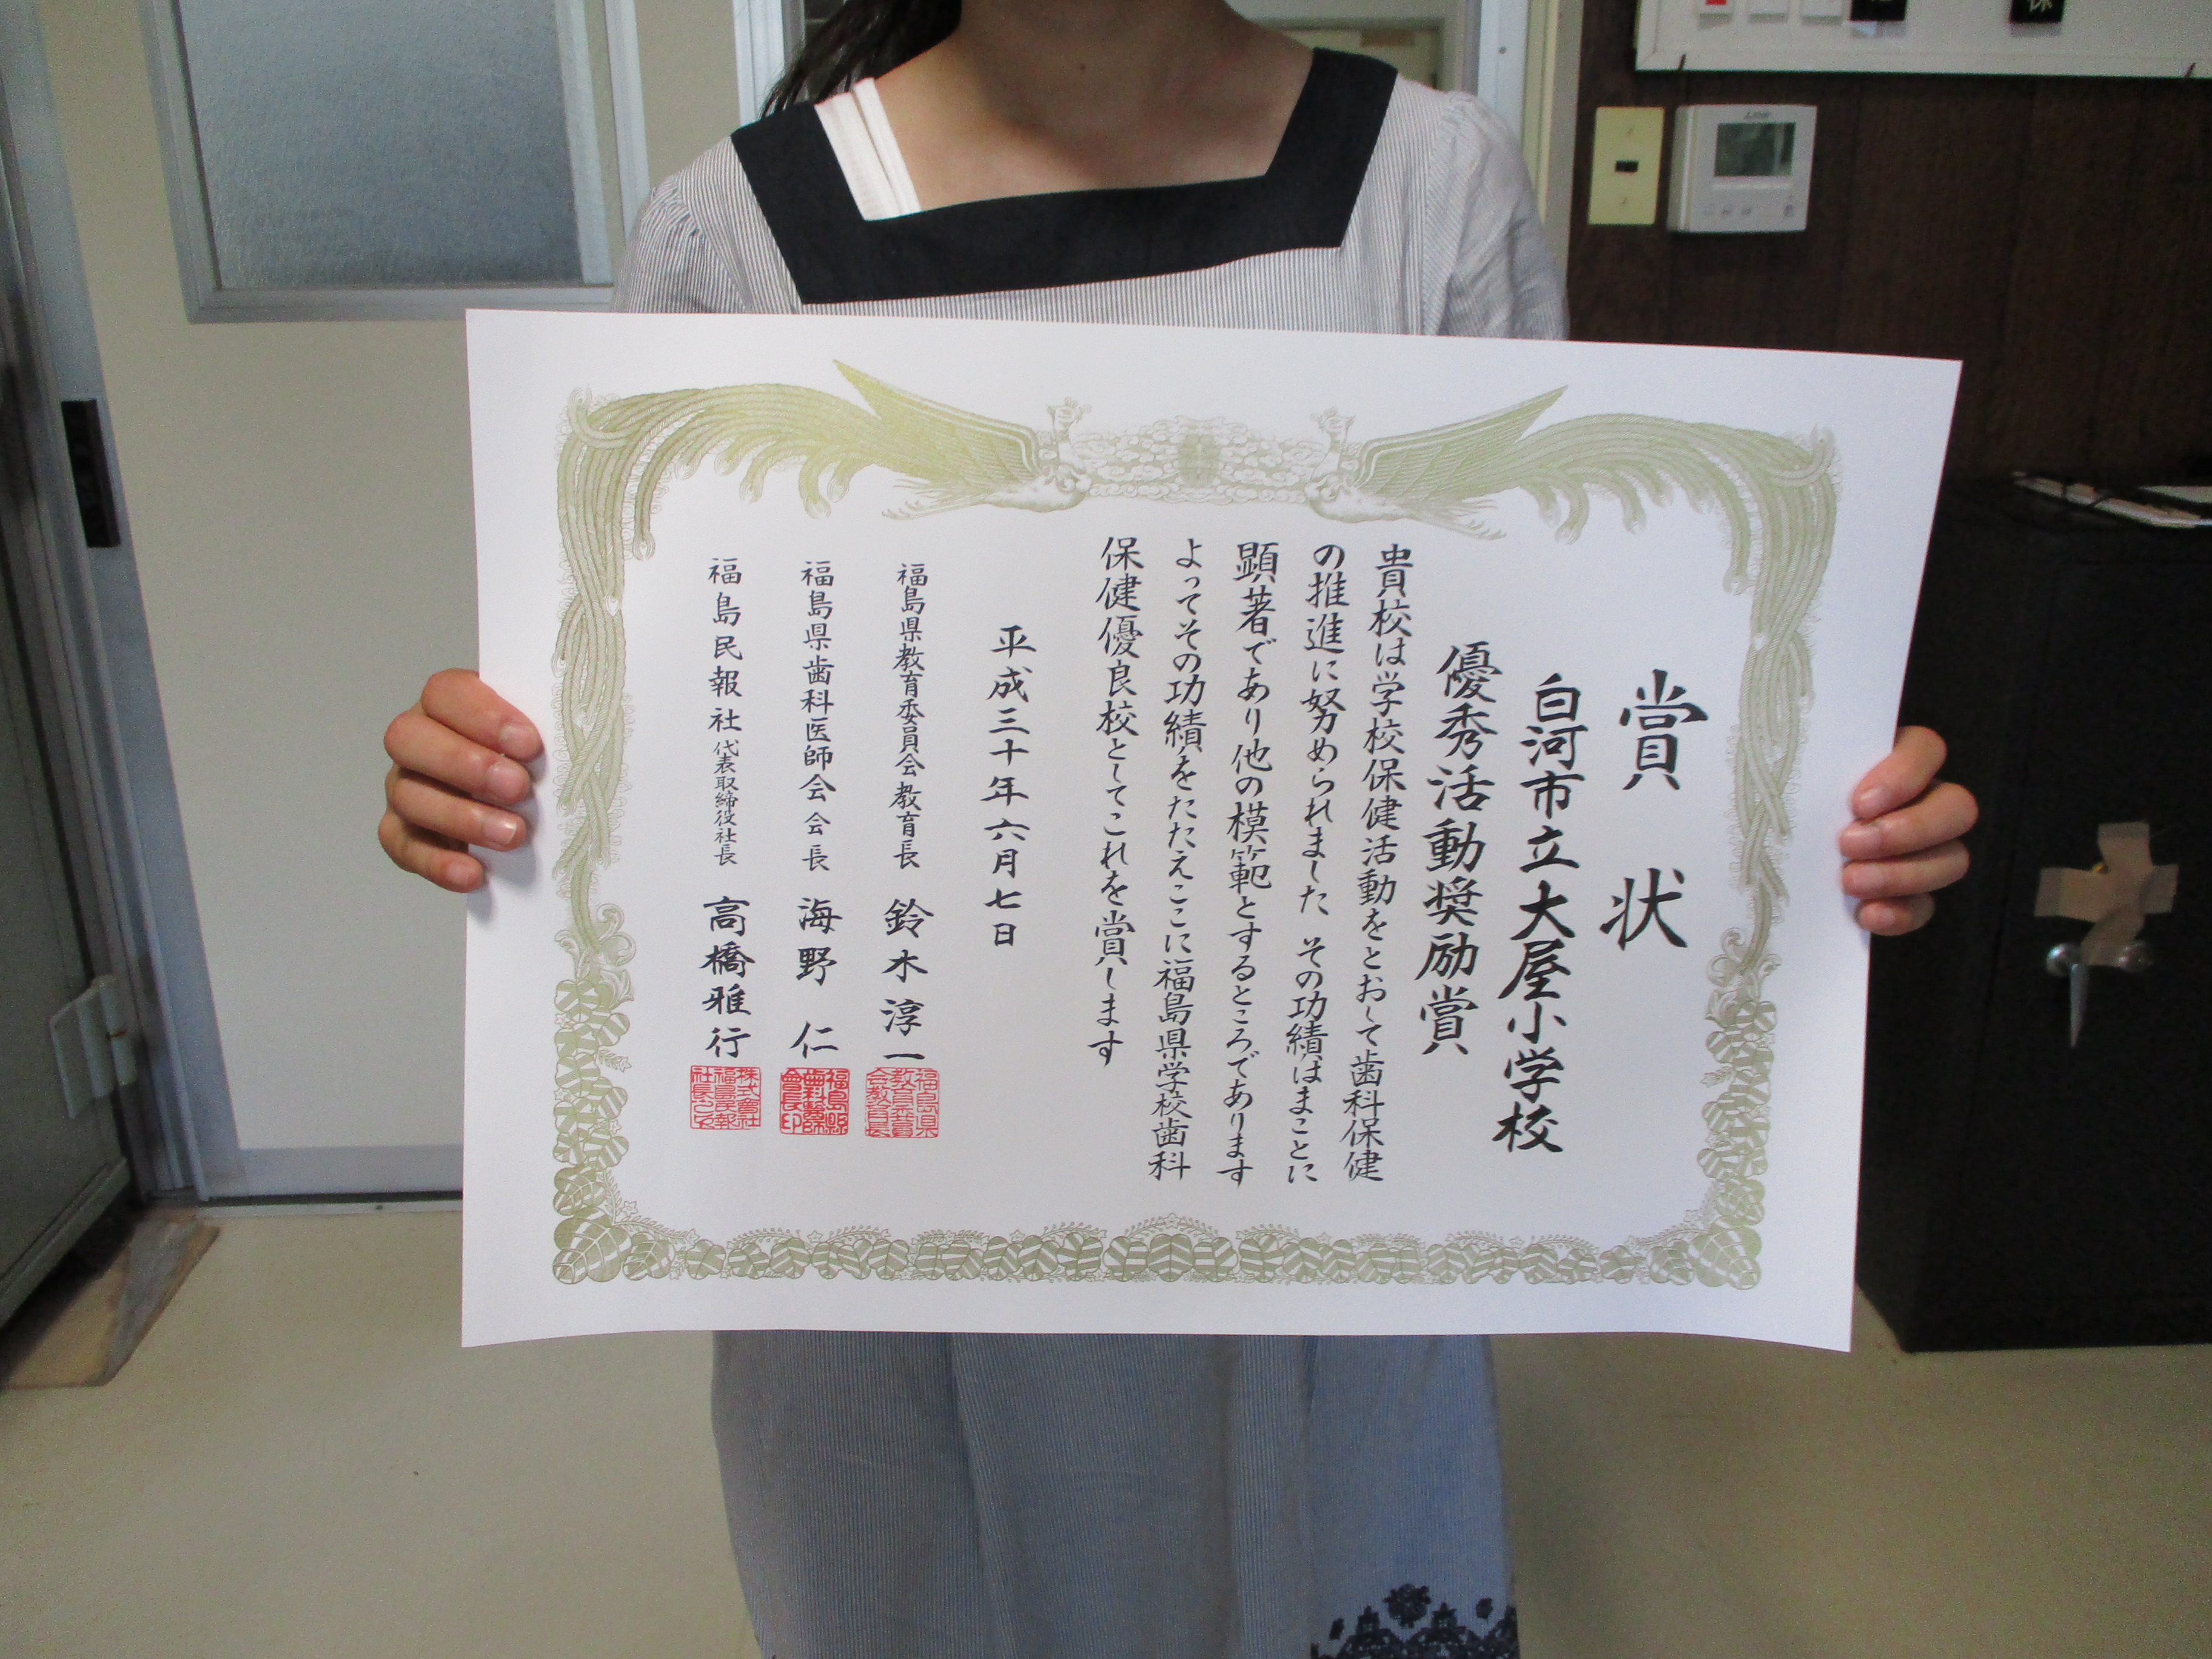 賞状
白河市立大屋小学校
優秀活動奨励賞
貴校は学校保健活動をとおして歯科保健
の推進に努められました その功績はまことに
顕著であり他の模範とするところであります
よってその功績をたたえここに福島県学校歯科
保健優良校としてこれを賞します
平成三十年六月七日
福島県教育委員会教育長 鈴木淳一
福島県歯科医師会会長 海野 仁
福島民報社 代表取締役社長 高橋雅行